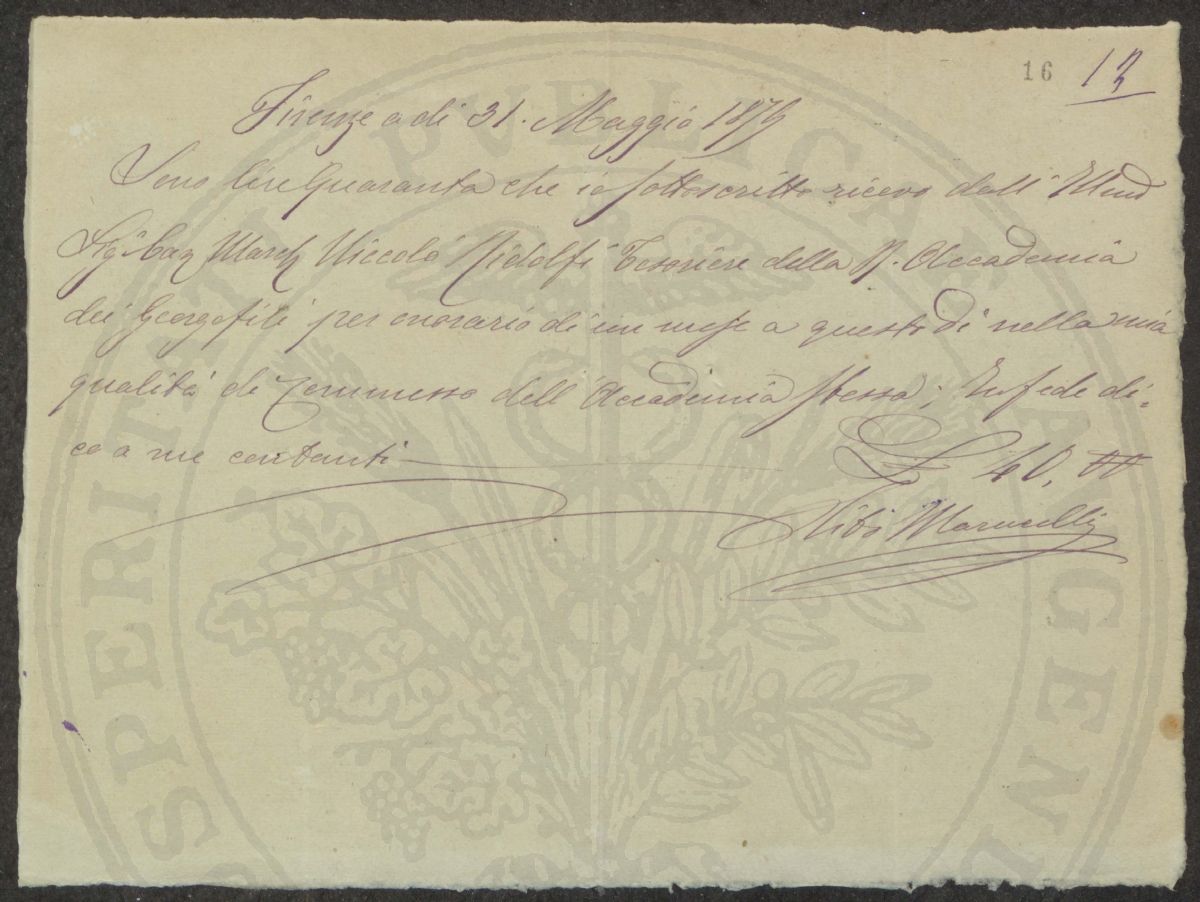 16 13
Firenze a di 31. Maggio 187
Sono lire Quaranta che io sottoscritto ricevo dall'
Sigr Cav March Niccolò Ridolfi Tesoriere della R. Accademia
dei Georgofili per onorario di un mese a questo dì nella mia
qualità di Commesso dell'Accademia stessa; In fede di-
co a me contanti
£ 40,
Marucelli
PROSPERITATI PVBLICAE AVGENDAE